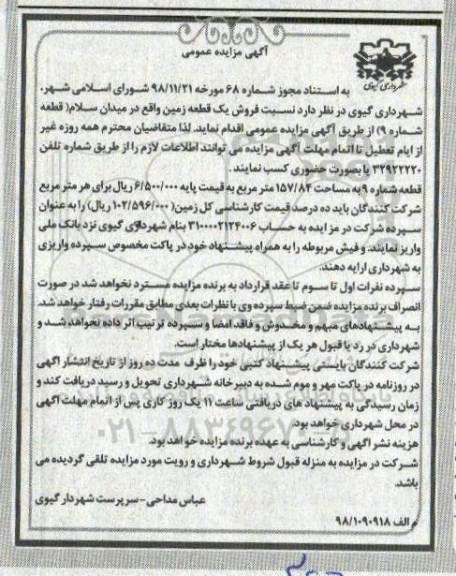 آگهی مزایده عمومی
شهرداری گیوی
به استناد مجوز شماره ۶۸ مورخه ۹۸/۱۱/۲۱ شورای اسلامی شهر،
شهرداری گیوی در نظر دارد نسبت فروش یک قطعه زمین واقع در میدان سلام( قطعه
شماره ۹) از طریق آگهی مزایده عمومی اقدام نماید. لذا متقاضیان محترم همه روزه غیر
از ایام تعطیل تا اتمام مهلت آگهی مزایده می توانند اطلاعات لازم را از طریق شماره تلفن
۳۲۹۲۲۲۲۰ یا بصورت حضوری کسب نمایند.
قطعه شماره ۹ به مساحت ۱۵۷/۸۴ متر مربع به قیمت پایه ۶/۵۰۰/۰۰۰ ریال برای هر متر مربع
شرکت کنندگان باید ده درصد قیمت کارشناسی کل زمین( ۱۰۲/۵۹۶/۰۰۰ ریال) را به عنوان
سپرده شرکت در مزایده به حساب ۳۱۰۰۰۰۲۱۲۴۰۰۶ بنام شهرداری گیوی نزد بانک ملی
واریز نمایند. و فیش مربوطه را به همراه پیشنهاد خود در پاکت مخصوص سپرده واریزی
به شهرداری ارایه دهند.
سپرده نفرات اول تا سوم تا عقد قرارداد به برنده مزایده مسترد نخواهد شد در صورت
انصراف برنده مزایده ضمن ضبط سپرده وی با نظرات بعدی مطابق مقررات رفتار خواهد شد.
به پیشنهادهای مبهم و مخدوش و فاقد امضا و سپرده ترتیب اثر داده نخواهد شد و
شهرداری در رد یا قبول هر یک از پیشنهادها مختار است.
شرکت کنندگان بایستی پیشنهاد کتبی خود را ظرف مدت ده روز از تاریخ انتشار آگهی
در روزنامه در پاکت مهر و موم شده به دبیرخانه شهرداری تحویل و رسید دریافت کند و
زمان رسیدگی به پیشنهاد های دریافتی ساعت ۱۱ یک روز کاری پس از اتمام مهلت آگهی
در محل شهرداری خواهد بود.
هزینه نشر آگهی و کارشناسی به عهده برنده مزایده خواهد بود.
شرکت در مزایده به منزله قبول شروط شهرداری و رویت مورد مزایده تلقی گردیده می
باشد.
عباس مداحی-سرپرست شهردار گیوی
م الف ۹۸/۱۰۹۰۹۱۸
۰۲۱-۸۸۳۴۹۶۷۰